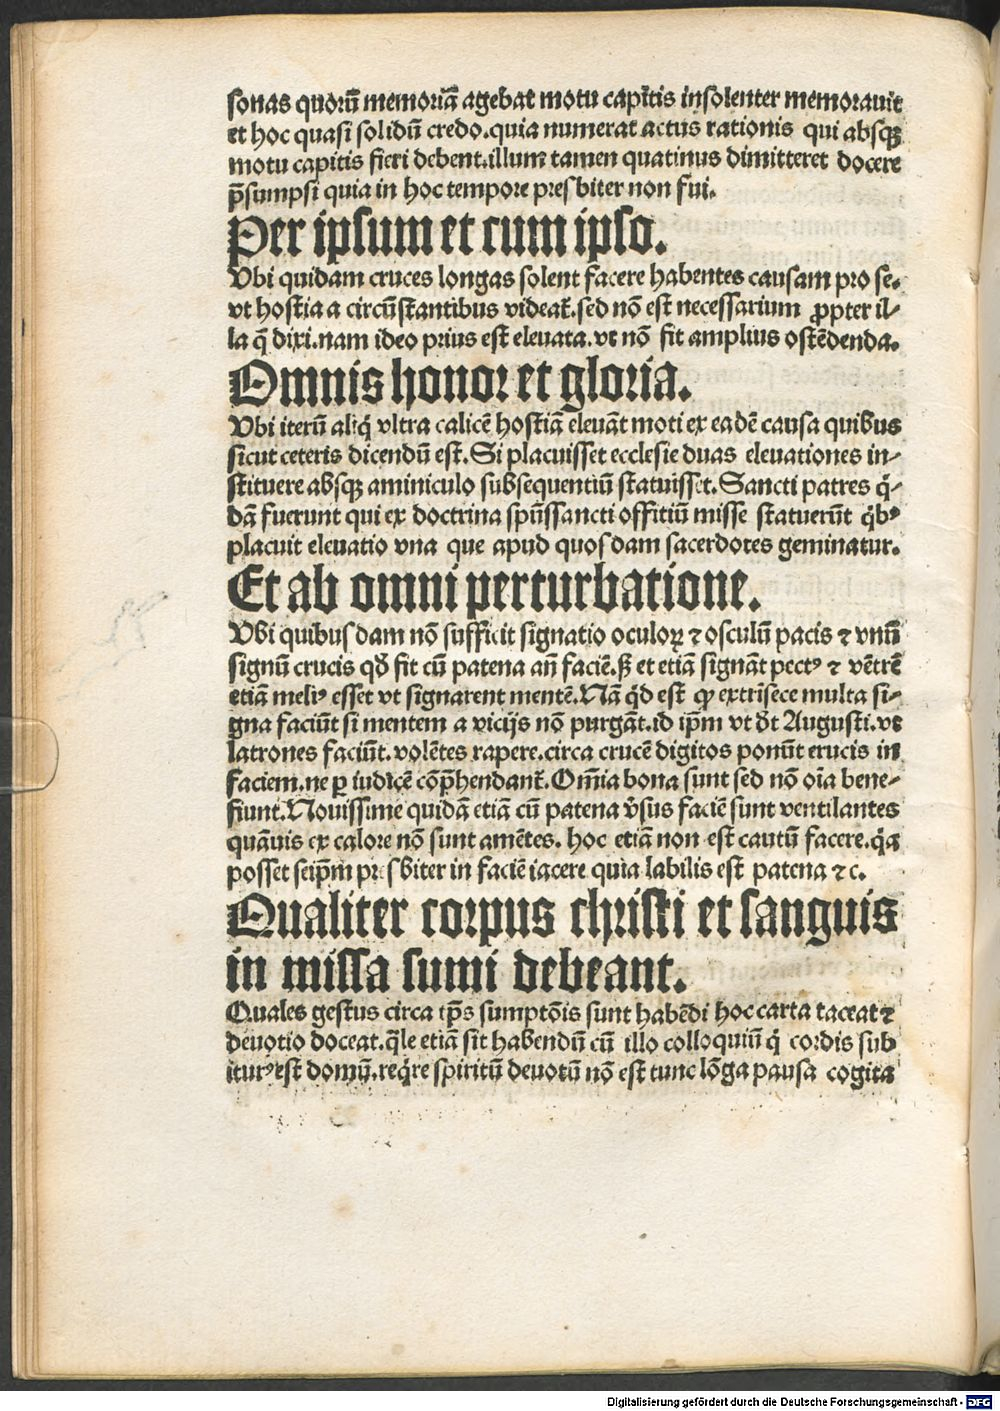 sonas quorū memoriā agebat motu capitis insolenter memorauit
et hoc quasi solidū credo.quia numerat actus rationis qui absqꝫ
motu capitis fieri debent.illum tamen quatinus dimitteret docere
p̄sumpsi quia in hoc tempore presbiter non fui.
Per ipsum et cum ipso.
Vbi quidam cruces longas solent facere habentes causam pro se.
vt hostia a circūstantibus videat̄.sed nō est necessarium ꝓpter il-
la q̄ dixi.nam ideo prius est eleuata.vt nō fit amplius ostēdenda.
Omnis honor et gloria.
Vbi iterū aliq̇ vltra calicē hostiā eleuāt moti ex eadē causa quibus
sicut ceteris dicendū est.Si placuisset ecclesie duas eleuationes in-
stituere absqꝫ aminiculo subsequentiū statuisset.Sancti patres q̇-
dā fuerunt qui ex doctrina spūssancti offitiū misse statuerūt q̇bꝰ
placuit eleuatio vna que apud quosdam sacerdotes geminatur.
Et ab omni perturbatione.
Vbi quibusdam nō sufficit signatio oculoꝝ ⁊ osculū pacis ⁊ vnū
signū crucis qđ fit cū patena an̄ faciē.sꝫ et etiā signāt pectꝰ ⁊ vētrē
etiā meliꝰ esset vt signarent mentē.Nā q̇d est ꝙ extrīsece multa si-
gna faciūt si mentem a vicijs nō purgāt.id ip̄m vt ꝺt Augusti.vt
latrones faciūt.volētes rapere.circa crucē digitos ponūt crucis in
faciem.ne ꝑ iudicē cōp̄hendant̄.Om̄ia bona sunt sed nō oīa bene-
fiunt.Nouissime quidā etiā cū patena v̓sus faciē sunt ventilantes
quāuis ex calore nō sunt amētes. hoc etiā non est cautū facere.q̇a
posset seip̄m presbiter in faciē iacere quia labilis est patena ⁊c.
Qualiter corpus christi et sanguis
in missa sumi debeant.
Quales gestus circa ip̄s sumptōis sunt habēdi hoc carta taceat ⁊
deuotio doceat.q̄le etiā sit habendū cū illo colloquiū q̇ cordis sub
iturꝰ est domū.req̇re spiritū deuotū nō est tunc lōga pausa cogita
Digitalisierung gefördert durch die Deutsche Forschungsgemeinschaft - DFG